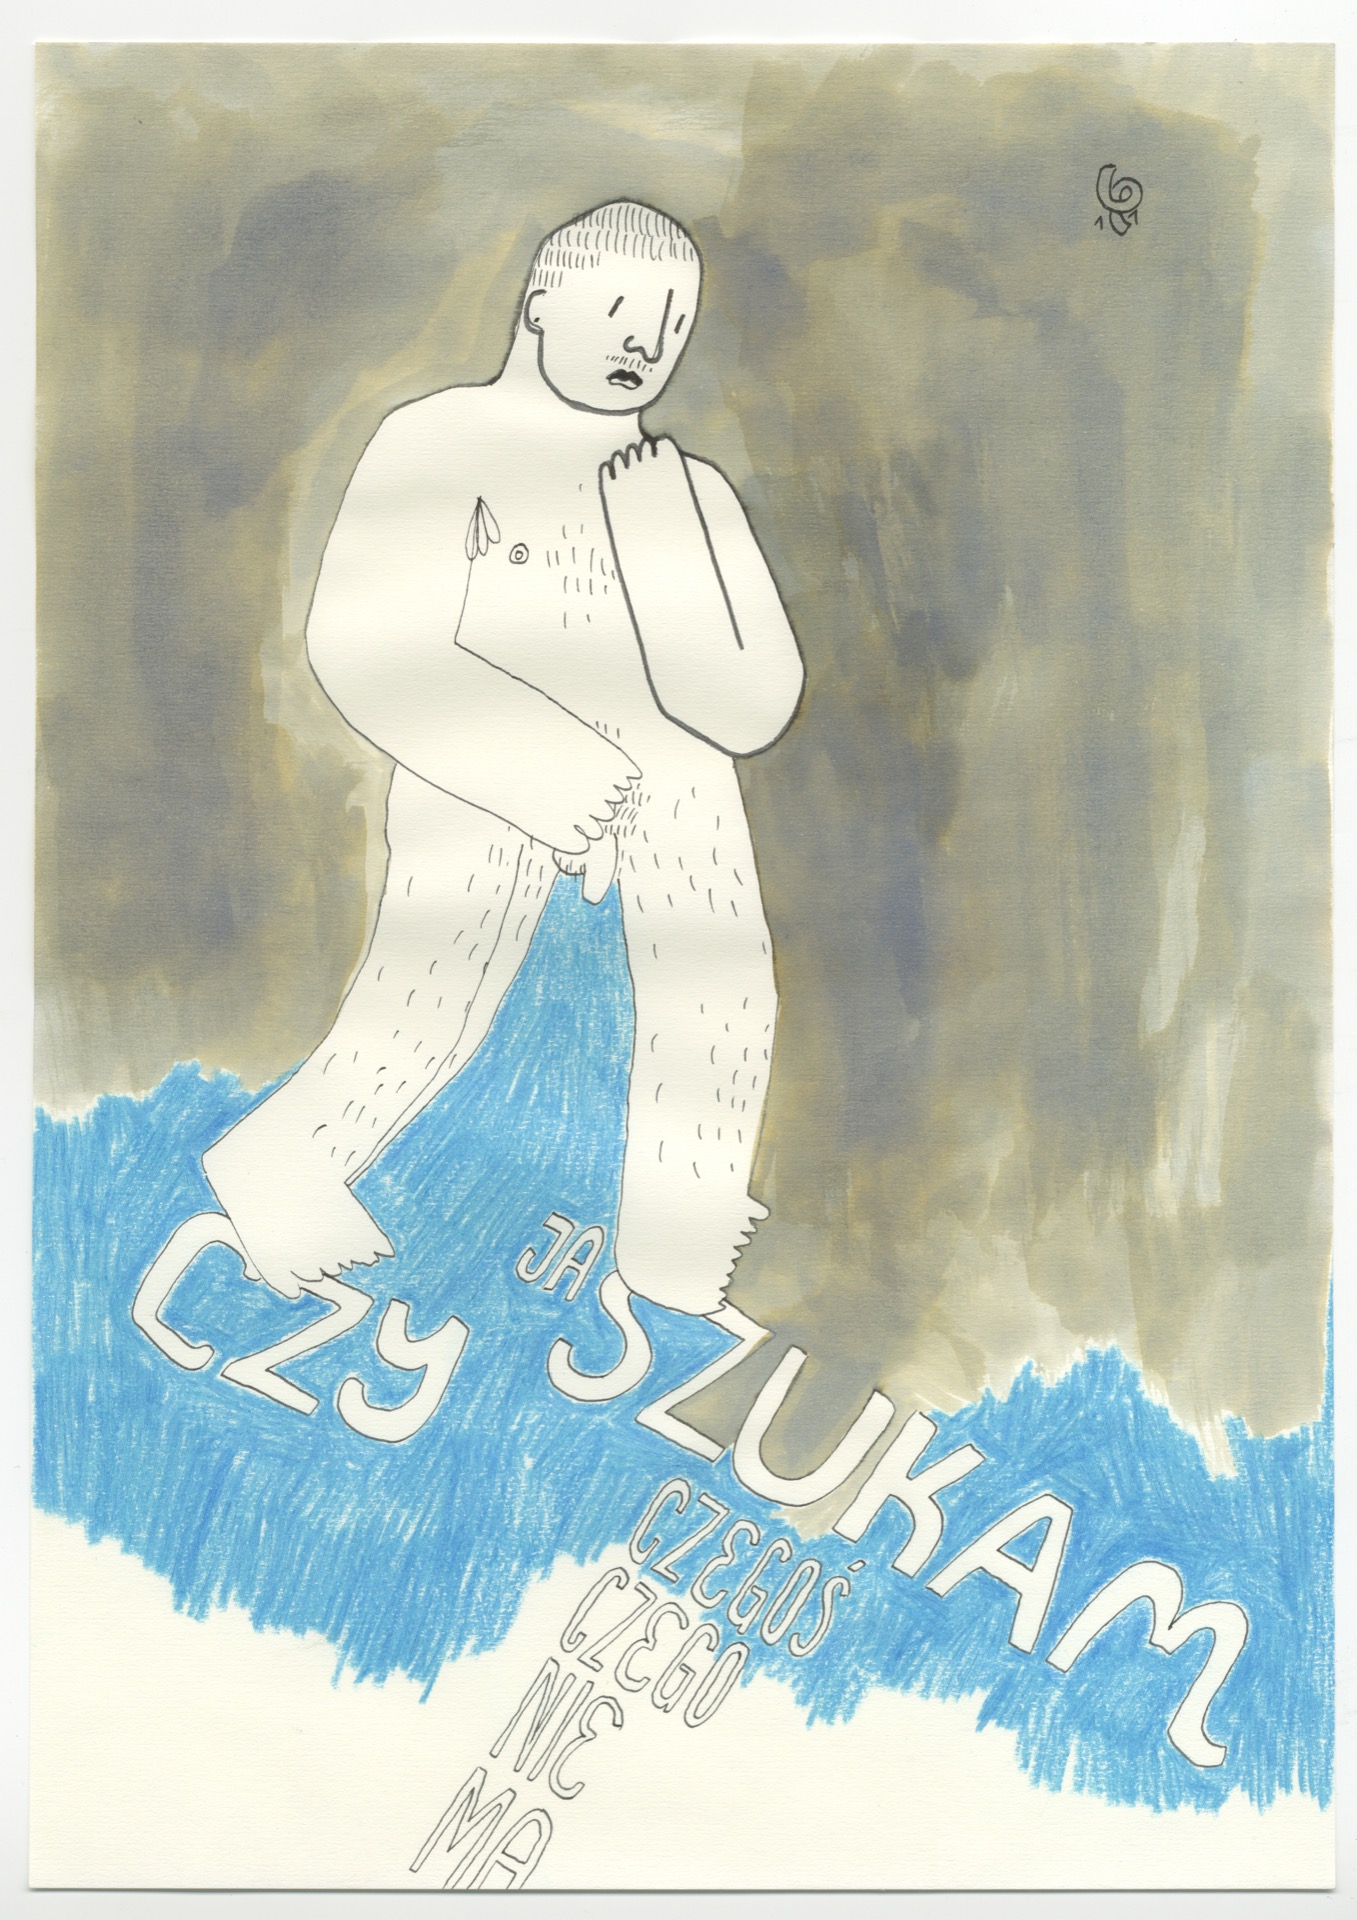 CZY JA SZUKAM
CZEGOŚ
CZEGO
NIE
MA